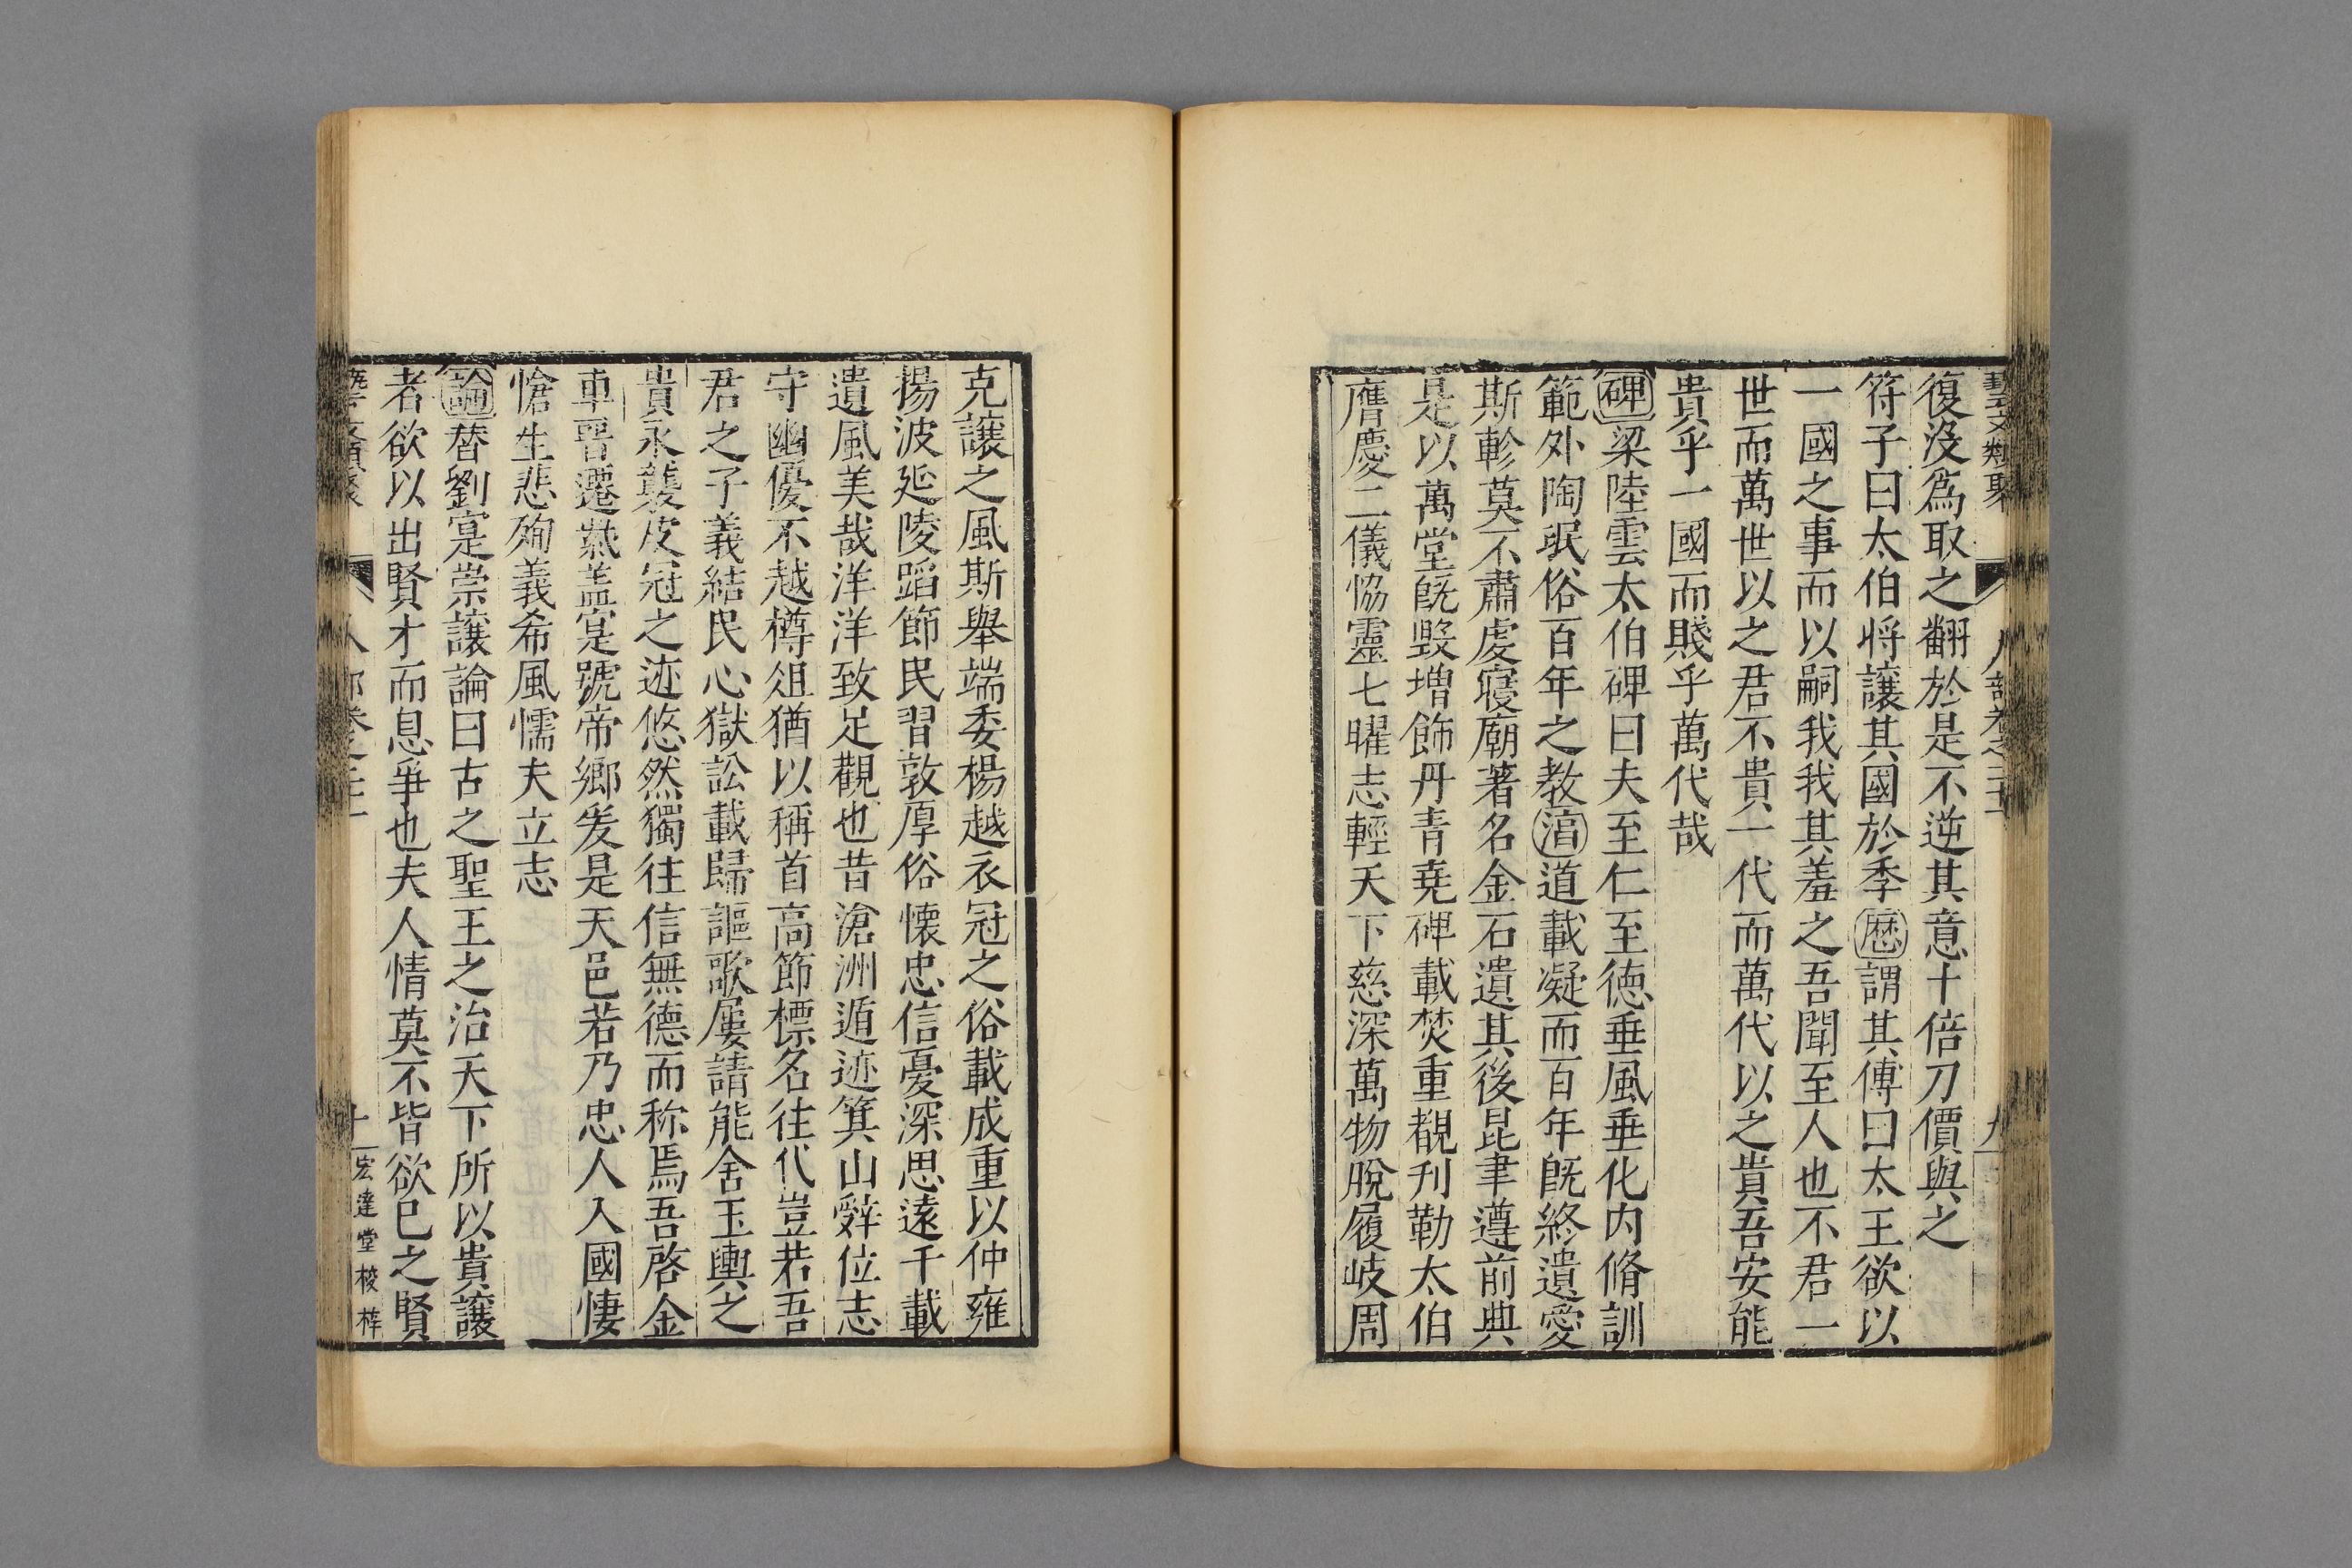 藝文類聚 人部卷之二十一 九
復沒爲取之翻於是不逆其意十倍刀價與之
符子曰太伯將讓其國於季歷謂其傅曰太王欲以
一國之事而以嗣我我其羞之吾聞至人也不君一
世而萬世以之君不貴一代而萬代以之貴吾安能
貴乎一國而賤乎萬代哉
碑梁陸雲太伯碑曰夫至仁至德垂風垂化内脩訓
範外陶氓俗百年之教道載凝而百年旣終遺愛
斯軫莫不肅虔寢廟著名金石遺其後昆聿遵前典
是以萬堂旣毀增飾丹青堯碑載焚重覩刊勒太伯
膺慶二儀恊靈七曜志輕天下慈深萬物脫履岐周
克讓之風斯舉端委楊越衣冠之俗載成重以仲雍
揚波延陵蹈節民習敦厚俗懷忠信憂深思遠千載
遺風美哉洋洋致足觀也昔滄洲遁迹箕山辤位志
守幽優不越樽俎猶以稱首高節標名往代豈若吾
君之子義結民心獄訟載歸謳歌屢請能舍玉輿之
貴永襲皮冠之迹悠然獨往信無德而称焉吾啓金
車晉遷黻盖寔號帝鄉爰是天邑若乃忠人入國悽
愴生悲殉義希風懦夫立志
論替劉寔崇讓論曰古之聖王之治天下所以貴讓
者欲以出賢才而息爭也夫人情莫不皆欲已之賢
人部卷之二十一 十 宏達堂梭梓